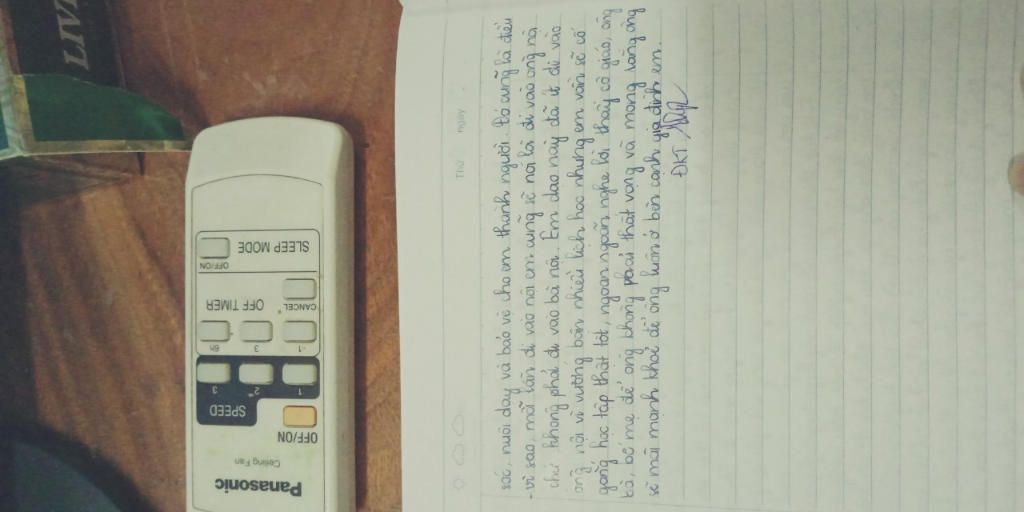 LIV
Panasonic
Ceiling Fan
OFF/ON
SPEED
1 2 3
-1 3 6h
OFF TIMER
CANCEL
SLEEP MODE
OFF/ON
Thứ ngày
sóc, nuôi dạy và bảo vệ cho em thành người. Đó cũng là điều
vì sao, mỗi lần đi vào nội em cũng sẽ nói là đi vào ông nội
chứ không phải đi vào bà nội. Em dạo này đã ít đi vào
ông nội vì vướng bận nhiều lịch học nhưng em vẫn sẽ cố
gắng học tập thật tốt, ngoan ngoãn nghe lời thầy cô giáo, ông
bà, bố mẹ để ông không phải thất vọng và mong rằng ông
sẽ mãi mạnh khoẻ để ông luôn ở bên cạnh gia đình em.
ĐKT